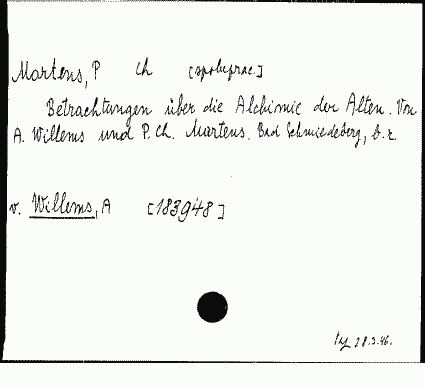 Martens, P Ch [spoluprac.]
Betrachtungen über die Alchimie der Alten. Von
A. Willems und P. Ch. Martens. Bad Schmiedeberg, b. r.
v. Willems, A [183948]
28.3.46.